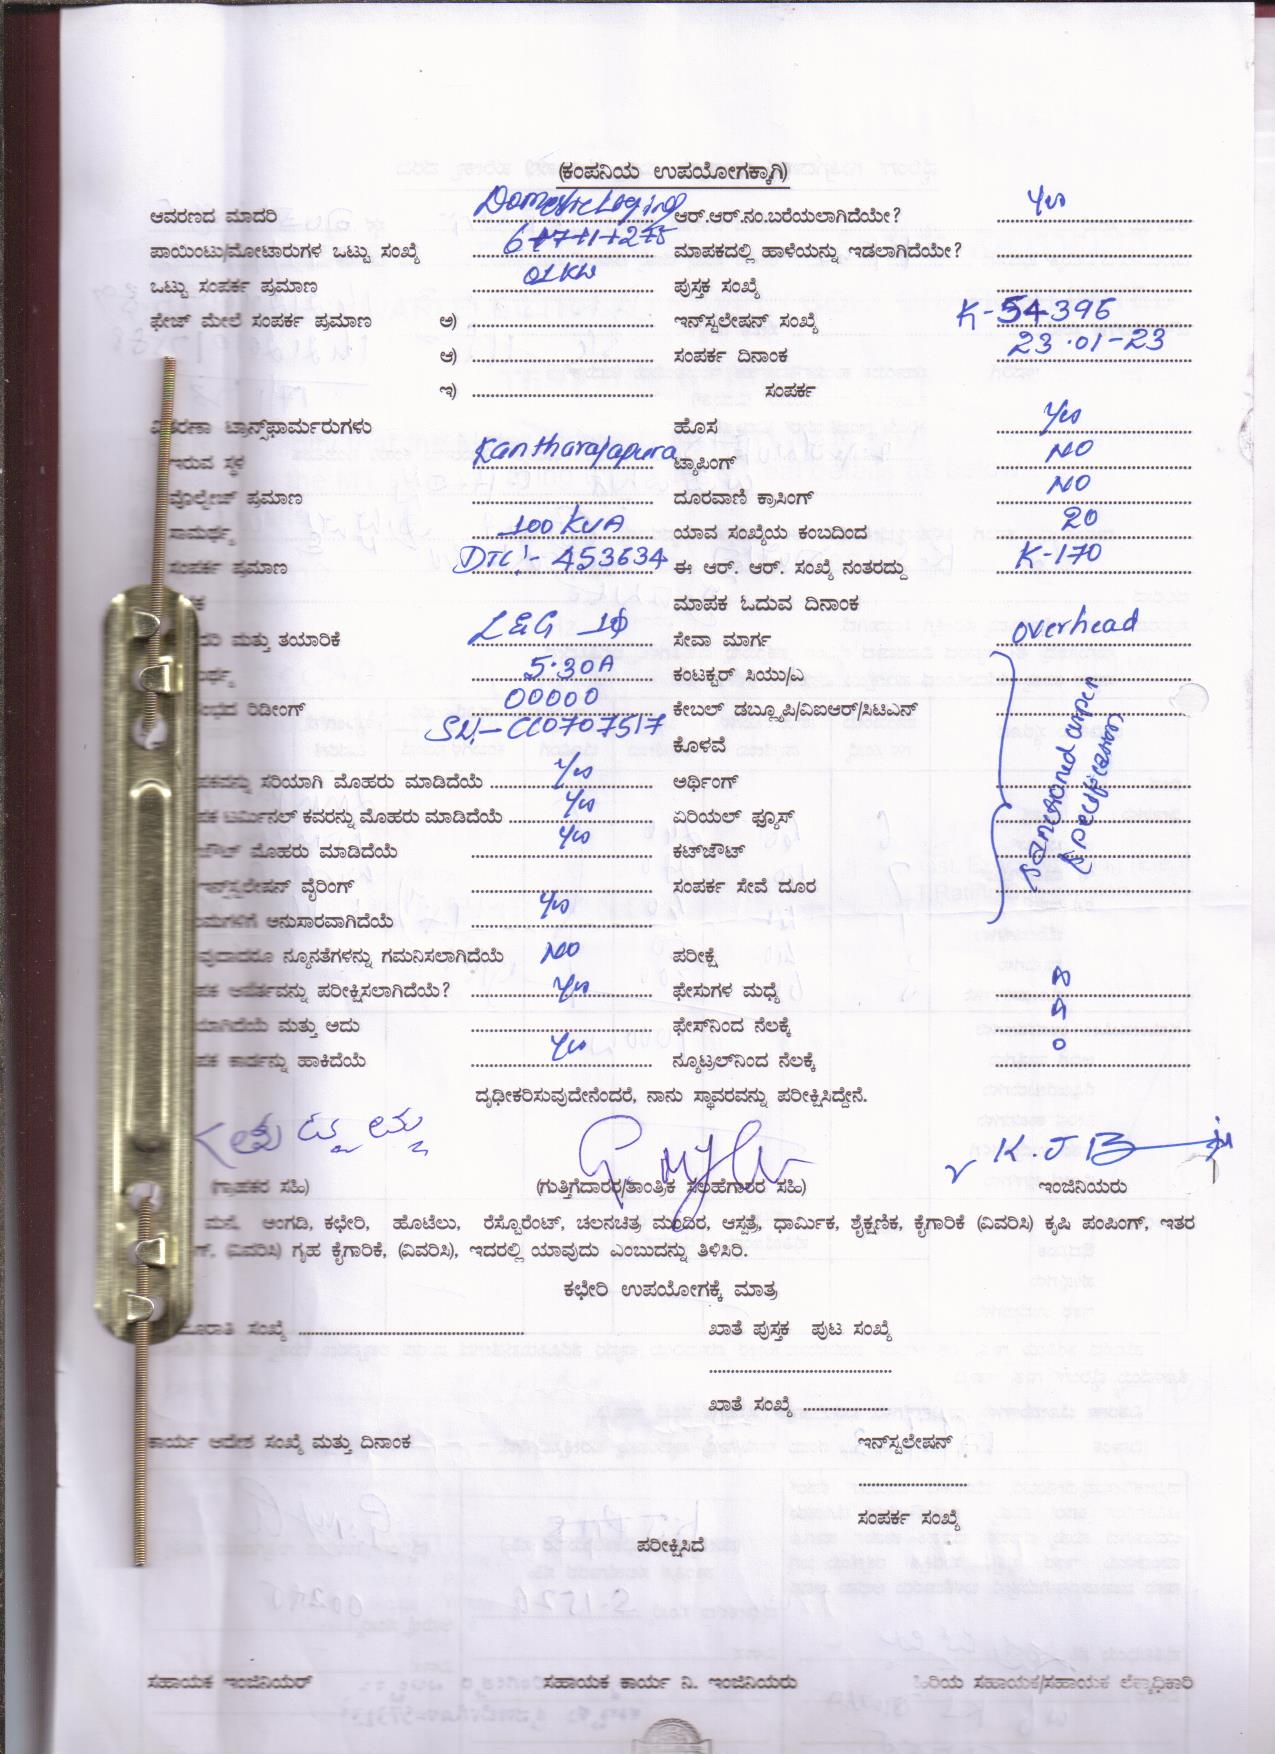 (ಕಂಪನಿಯ ಉಪಯೋಗಕ್ಕಾಗಿ)
ಆವರಣದ ಮಾದರಿ Domestic Loging ಆರ್.ಆರ್.ನಂ.ಬರೆಯಲಾಗಿದೆಯೇ? Yes
ಪಾಯಿಂಟು/ಮೋಟಾರುಗಳ ಒಟ್ಟು ಸಂಖ್ಯೆ ಮಾಪಕದಲ್ಲಿ ಹಾಳೆಯನ್ನು ಇಡಲಾಗಿದೆಯೇ?
ಒಟ್ಟು ಸಂಪರ್ಕ ಪ್ರಮಾಣ 01KW ಪುಸ್ತಕ ಸಂಖ್ಯೆ
ಫೇಜ್ ಮೇಲೆ ಸಂಪರ್ಕ ಪ್ರಮಾಣ ಅ) ಇನ್‌ಸ್ಟಲೇಷನ್ ಸಂಖ್ಯೆ K-54396
ಆ) ಸಂಪರ್ಕ ದಿನಾಂಕ 23.01-23
ಇ) ಸಂಪರ್ಕ
ಟ್ರಾನ್ಸ್‌ಫಾರ್ಮರುಗಳು ಹೊಸ Yes
ಇರುವ ಸ್ಥಳ Kantharajapura ಟ್ಯಾಪಿಂಗ್ NO
ವೊಲ್ಟೇಜ್ ಪ್ರಮಾಣ ದೂರವಾಣಿ ಕ್ರಾಸಿಂಗ್ NO
ಸಾಮರ್ಥ್ಯ 100 KVA ಯಾವ ಸಂಖ್ಯೆಯ ಕಂಬದಿಂದ 20
ಸಂಪರ್ಕ ಪ್ರಮಾಣ DTC:- 453634 ಈ ಆರ್. ಆರ್. ಸಂಖ್ಯೆ ನಂತರದ್ದು K-170
ಮಾಪಕ ಓದುವ ದಿನಾಂಕ
ಮತ್ತು ತಯಾರಿಕೆ L&G 1Φ ಸೇವಾ ಮಾರ್ಗ overhead
5-30A ಕಂಟಕ್ಟರ್ ಸಿಯು/ಎ
ರಿಡೀಂಗ್ 00000 ಕೇಬಲ್ ಡಬ್ಲ್ಯೂಪಿ/ವಿಐಆರ್/ಸಿಟಿಎಸ್
SN:- CC0707517 ಕೊಳವೆ
ಸರಿಯಾಗಿ ಮೊಹರು ಮಾಡಿದೆಯೆ Yes ಅರ್ಥಿಂಗ್
ಟರ್ಮಿನಲ್ ಕವರನ್ನು ಮೊಹರು ಮಾಡಿದೆಯೆ Yes ಏರಿಯಲ್ ಫ್ಯೂಸ್
ಮೊಹರು ಮಾಡಿದೆಯೆ Yes ಕಟ್‌ಔಟ್
ಇನ್‌ಸ್ಟಲೇಷನ್ ವೈರಿಂಗ್ ಸಂಪರ್ಕ ಸೇವೆ ದೂರ
ಅನುಸಾರವಾಗಿದೆಯೆ Yes
ನ್ಯೂನತೆಗಳನ್ನು ಗಮನಿಸಲಾಗಿದೆಯೆ NO ಪರೀಕ್ಷೆ
ಪರೀಕ್ಷಿಸಲಾಗಿದೆಯೆ? Yes ಫೇಸುಗಳ ಮಧ್ಯೆ
ಮತ್ತು ಅದು ಫೇಸ್‌ನಿಂದ ನೆಲಕ್ಕೆ
ಕಾರ್ಡನ್ನು ಹಾಕಿದೆಯೆ Yes ನ್ಯೂಟ್ರಲ್‌ನಿಂದ ನೆಲಕ್ಕೆ
ದೃಢೀಕರಿಸುವುದೇನೆಂದರೆ, ನಾನು ಸ್ಥಾವರವನ್ನು ಪರೀಕ್ಷಿಸಿದ್ದೇನೆ.
K.J.B
(ಗ್ರಾಹಕರ ಸಹಿ) (ಗುತ್ತಿಗೆದಾರರ/ತಾಂತ್ರಿಕ ಸಲಹೆಗಾರರ ಸಹಿ) ಇಂಜಿನಿಯರು
ಮನೆ, ಅಂಗಡಿ, ಕಛೇರಿ, ಹೊಟೆಲು, ರೆಸ್ಟೋರೆಂಟ್, ಚಲನಚಿತ್ರ ಮಂದಿರ, ಆಸ್ಪತ್ರೆ, ಧಾರ್ಮಿಕ, ಶೈಕ್ಷಣಿಕ, ಕೈಗಾರಿಕೆ (ವಿವರಿಸಿ) ಕೃಷಿ ಪಂಪಿಂಗ್, ಇತರ
(ವಿವರಿಸಿ) ಗೃಹ ಕೈಗಾರಿಕೆ, (ವಿವರಿಸಿ), ಇದರಲ್ಲಿ ಯಾವುದು ಎಂಬುದನ್ನು ತಿಳಿಸಿರಿ.
ಕಛೇರಿ ಉಪಯೋಗಕ್ಕೆ ಮಾತ್ರ
ಸಂಖ್ಯೆ ಖಾತೆ ಪುಸ್ತಕ ಪುಟ ಸಂಖ್ಯೆ
ಖಾತೆ ಸಂಖ್ಯೆ
ಕಾರ್ಯ ಆದೇಶ ಸಂಖ್ಯೆ ಮತ್ತು ದಿನಾಂಕ ಇನ್‌ಸ್ಟಲೇಷನ್
ಸಂಪರ್ಕ ಸಂಖ್ಯೆ
ಪರೀಕ್ಷಿಸಿದೆ
ಸಹಾಯಕ ಇಂಜಿನಿಯರ್ ಸಹಾಯಕ ಕಾರ್ಯ ನಿ. ಇಂಜಿನಿಯರು ಹಿರಿಯ ಸಹಾಯಕ/ಸಹಾಯಕ ಲೆಕ್ಕಾಧಿಕಾರಿ